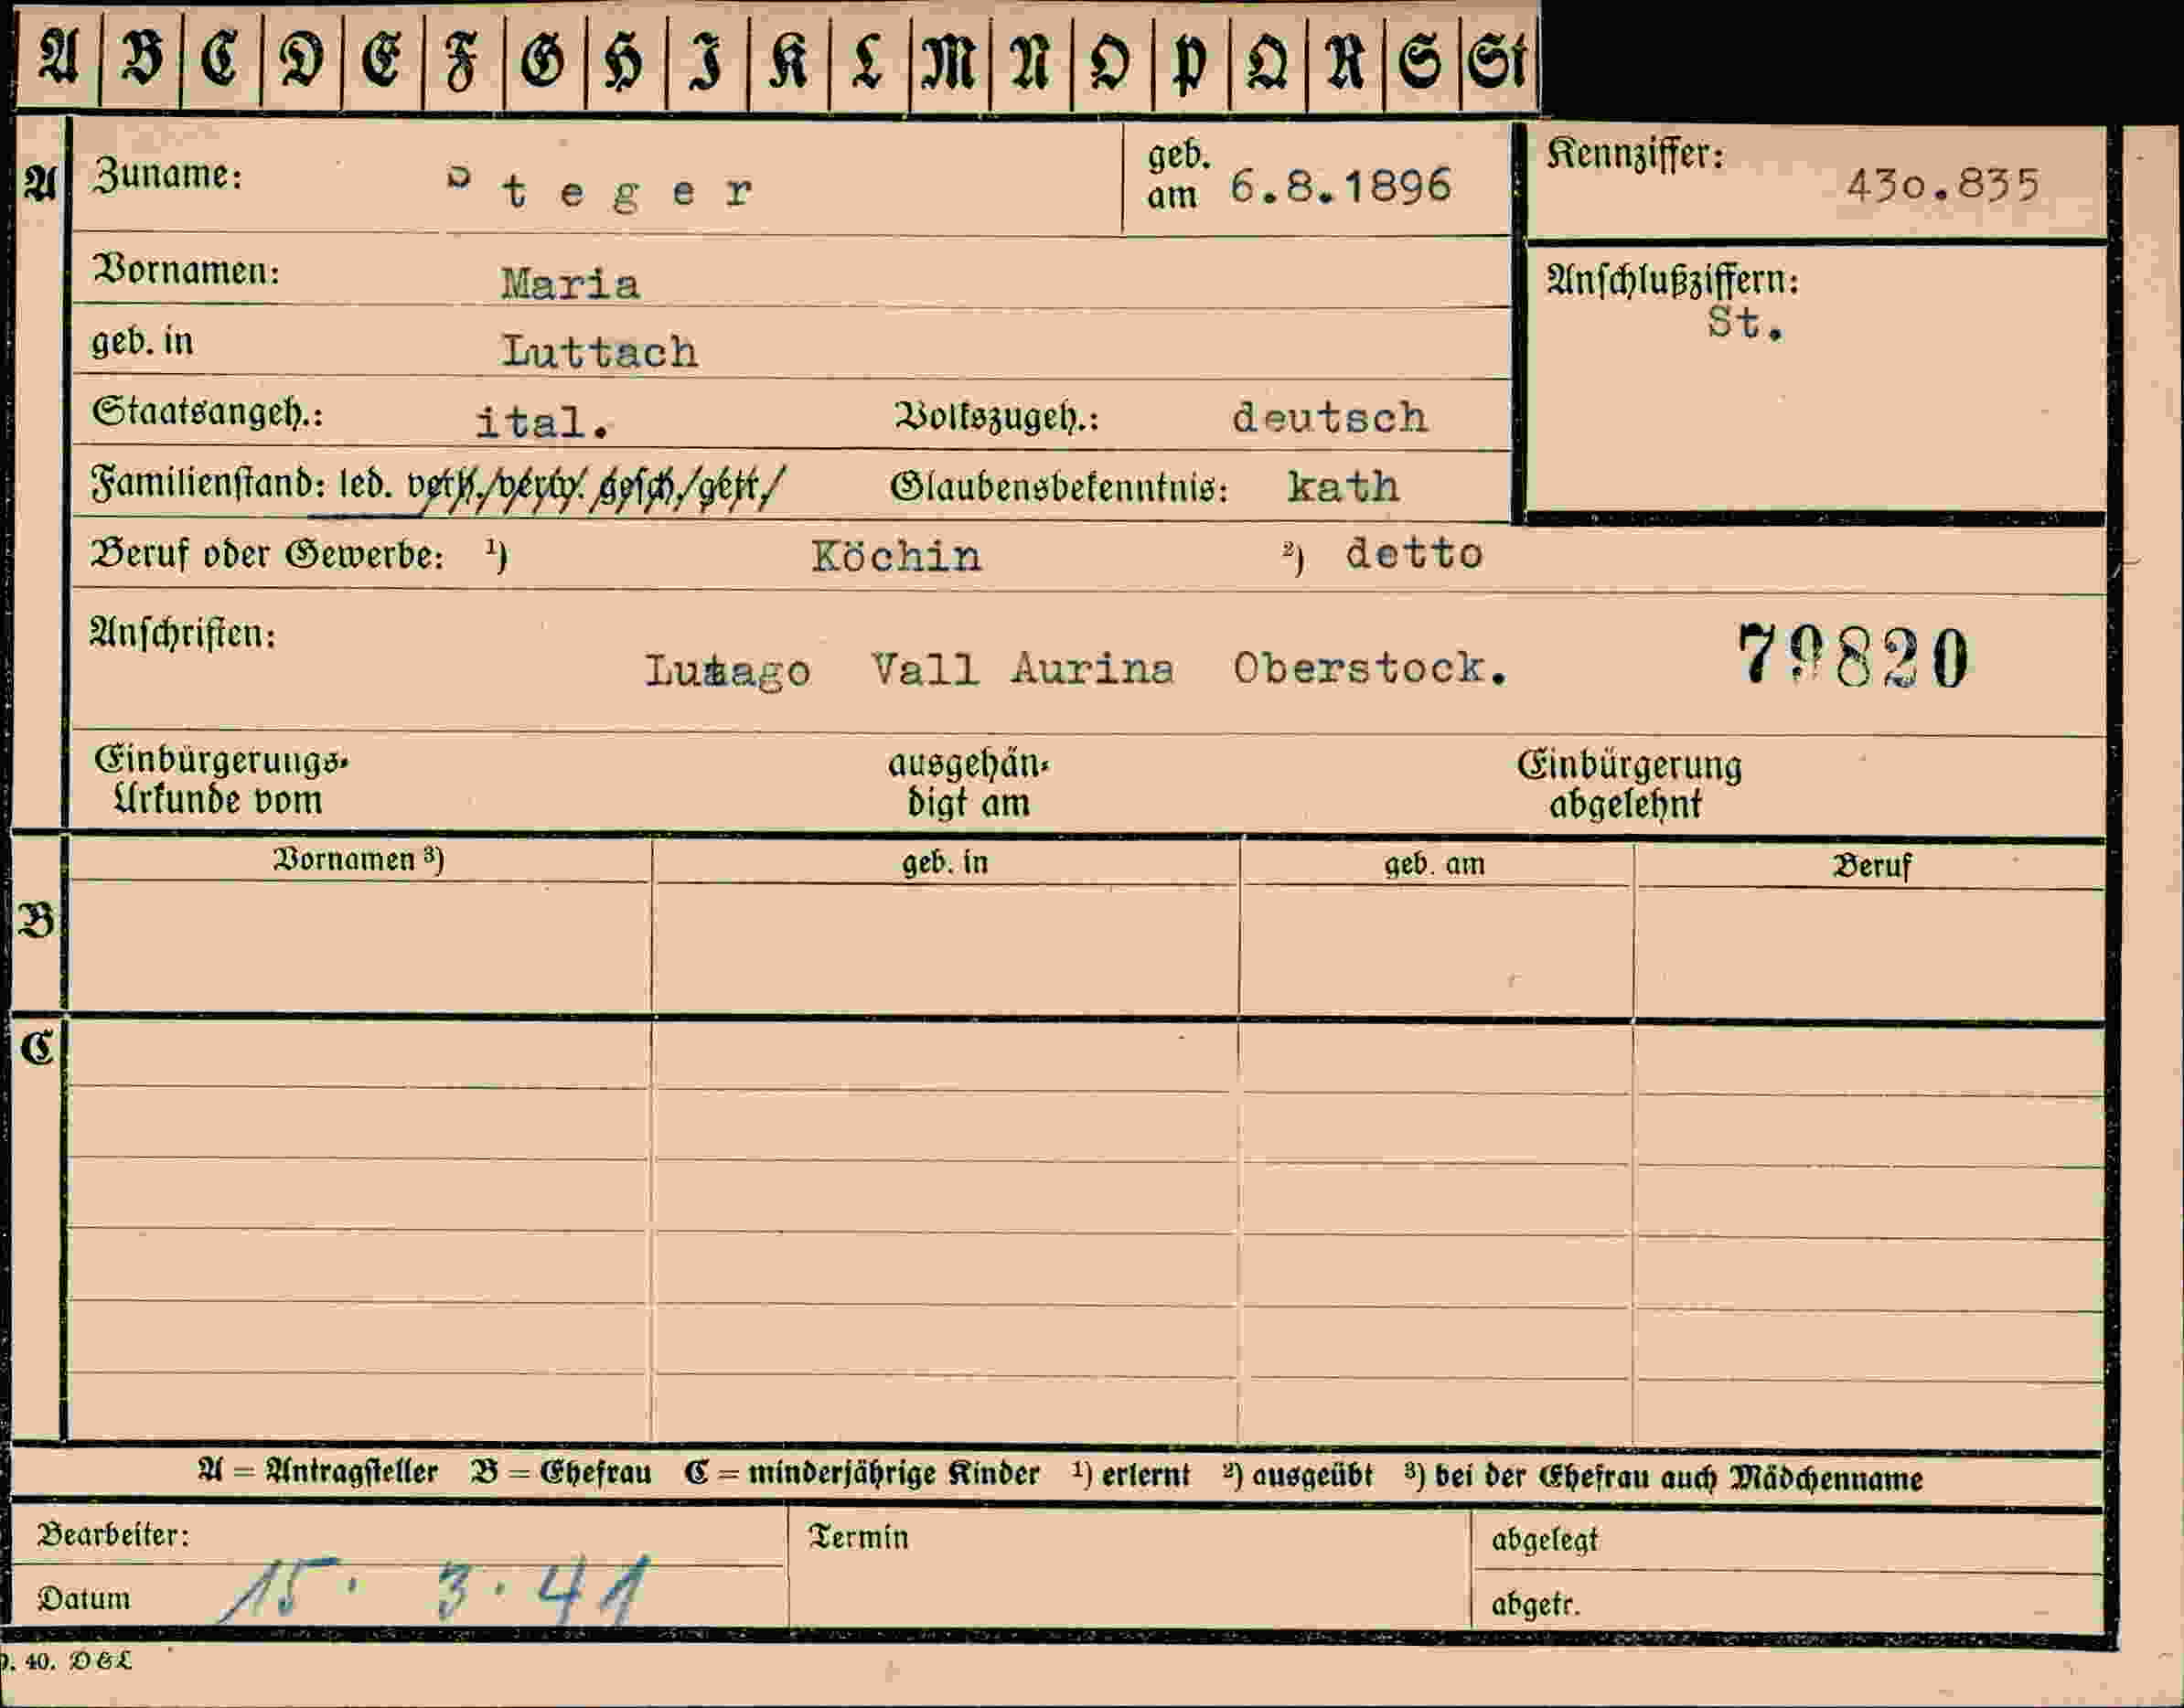 A B C D E F G H I K L M N O P Q R S St
A Zuname: Steger geb. am 6.8.1896 Kennziffer: 430.835
Vornamen: Maria Anschlußziffern: St.
geb. in Luttach
Staatsangeh.: ital. Volkszugeh.: deutsch
Familienstand: led. verh. verw. gesch. getr. Glaubensbekenntnis: kath
Beruf oder Gewerbe: ¹) Köchin ²) detto
Anschriften: Lutago Vall Aurina Oberstock. 79820
Einbürgerungs- ausgehän- Einbürgerung
Urkunde vom digt am abgelehnt
Vornamen ³) geb. in geb. am Beruf
B
C
A = Antragsteller B = Ehefrau C = minderjährige Kinder ¹) erlernt ²) ausgeübt ³) bei der Ehefrau auch Mädchenname
Bearbeiter: Termin abgelegt
Datum 15. 3. 41 abgetr.
40. D&L